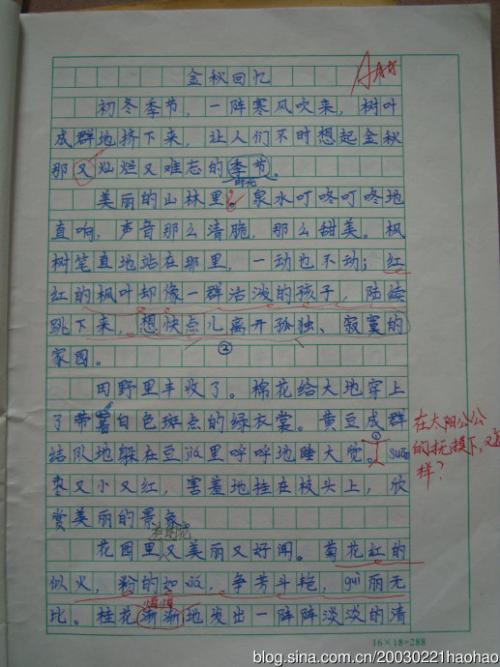 金秋回忆
初冬季节，一阵寒风吹来，树叶
成群地挤下来，让人们不时想起金秋
那又灿烂又难忘的季节。
美丽的山林里，泉水叮咚叮咚地
直响，声音那么清脆，那么甜美。枫
树笔直地站在那里，一动也不动；红
红的枫叶却像一群活泼的孩子，陆续
跳下来，想快点儿离开孤独、寂寞的
家园。
②
田野里丰收了。棉花给大地穿上
了带着白色斑点的绿衣裳。黄豆成群
结队地躲在豆荚里呼呼地睡大觉，suān
枣又小又红，害羞地挂在枝头上，欣
赏美丽的景象。
花园里又美丽又好闻。菊花红的
似火，粉的如霞，争芳斗艳，guī丽无
比。桂花渐渐地发出一阵阵淡淡的清
①
在太阳公公
的抚摸下，又怎
样？
16×18=288
blog.sina.com.cn/20030221haohao